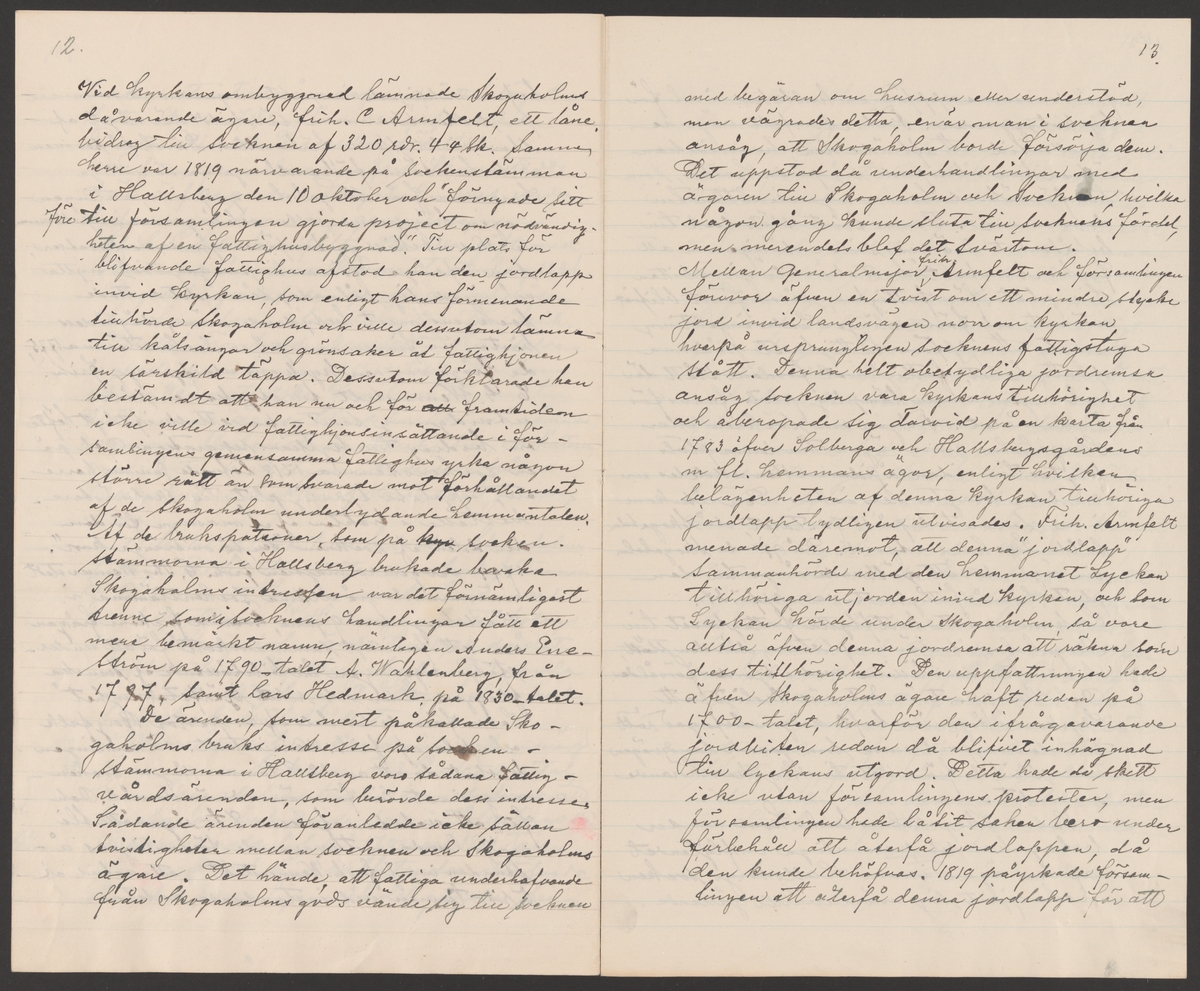 12.
Vid kyrkans ombyggnad lämnade Skogaholms
dåvarande ägare, frih. C Armfelt, ett låne-
bidrag till socknen af 320 rdr. 44 sk. Samme
herre var 1819 närvarande på sockenstämman
i Hallsberg den 10 oktober och "förnyade sitt
före till församlingen gjorda project om nödvändig-
heten af en fattighusbyggnad". Till plats för
blifvande fattighus afstod han den jordlapp
invid kyrkan, som enligt hans förmenande
tillhörde Skogaholm och ville dessutom lämna
till kålsängar och grönsaker åt fattighjonen
en särskild täppa. Dessutom förklarade han
bestämdt att han nu och för all framtiden
icke ville vid fattighjonsinsättande i för-
samlingens gemensamma fattighus yrka någon
större rätt än som svarade mot förhållandet
af de Skogaholm underlydande hemmantalen.
Af de brukspatroner, som på kyr socken-
stämmorna i Hallsberg brukade bevaka
Skogaholms intressen var det förnämligast
trenne som i socknens handlingar fått ett
mera bemärkt namn, nämligen Anders Ene-
ström på 1790-talet A. Wahlenberg, från
1797, samt Lars Hedmark på 1830-talet.
De ärenden, som mest påkallade Sko-
gaholms bruks intresse på socken-
stämmorna i Hallsberg voro sådana fattig-
vårdsärenden, som berörde dess intressen.
Sådande ärenden föranledde icke sällan
tvistigheter mellan socknen och Skogaholms
ägare. Det hände, att fattiga underhafvande
från Skogaholms gods vände sig till socknen
13.
med begäran om husrum eller understöd,
men vägrades detta, enär man i socknen
ansåg, att Skogaholm borde försörja dem.
Det uppstod då underhandlingar med
ägaren till Skogaholm och Socknen hvilka
någon gång kunde sluta till socknens fördel,
men merendels blef det tvärtom.
Mellan Generalmajor frih. Armfelt och församlingen
förevar äfven en tvist om ett mindre stycke
jord invid landsvägen norr om kyrkan,
hvarpå ursprungligen socknens fattigstuga
stått. Denna helt obetydliga jordremsa
ansåg socknen vara kyrkans tillhörighet
och åberopade sig därvid på en karta från
1783 öfver Solberga och Hallsbergsgårdens
m fl. hemmans ägor, enligt hvilken
belägenheten af denna kyrkan tillhöriga
jordlapp tydligen utvisades. Frih. Armfelt
menade däremot, att denna "jordlapp"
sammanhörde med den hemmanet Lyckan
tillhöriga utjorden invid kyrkan, och som
Lyckan hörde under Skogaholm, så vore
alltså äfven denna jordremsa att räkna som
dess tillhörighet. Den uppfattningen hade
äfven Skogaholms ägare haft redan på
1700-talet, hvarför den ifrågavarande
jordbiten redan då blifvit inhägnad
till Lyckans utgord. Detta hade då skett
icke utan församlingens protester, men
församlingen hade låtit saken bero under
förbehåll att återfå jordlappen, då
den kunde behöfvas. 1819 påyrkade försam-
lingen att återfå denna jordlapp för att